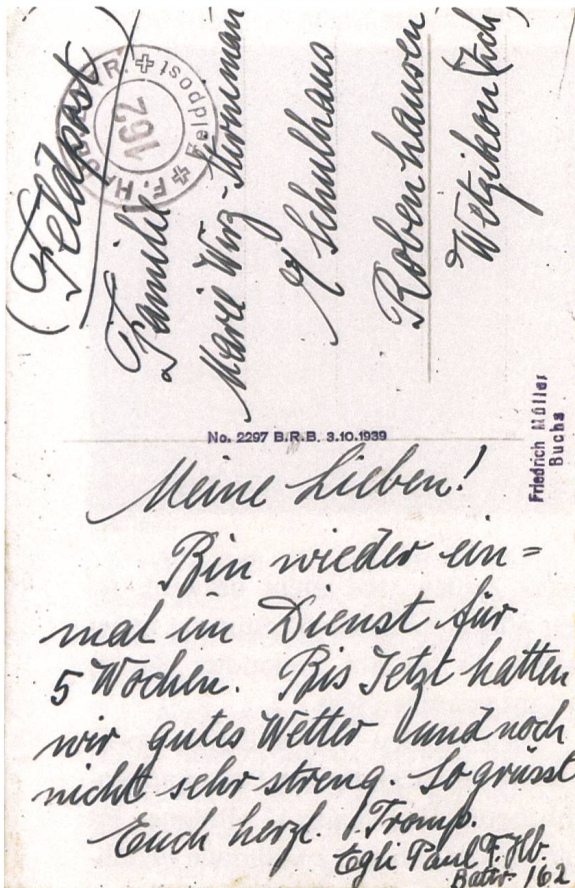 (Feldpost)
Familie
Marie Wirz-
z/ Schulhaus
Robenhausen
Wetzikon (Zch)
162
Feldpost
No. 2297 B.R.B. 3.10.1939
Friedrich Müller
Buchs
Meine Lieben!
Bin wieder ein=
mal im Dienst für
5 Wochen. Bis Jetzt hatten
wir gutes Wetter und noch
nicht sehr streng. So grüsst
Euch herzl. Tromp.
Egli Paul F. Hb.
Battr. 162